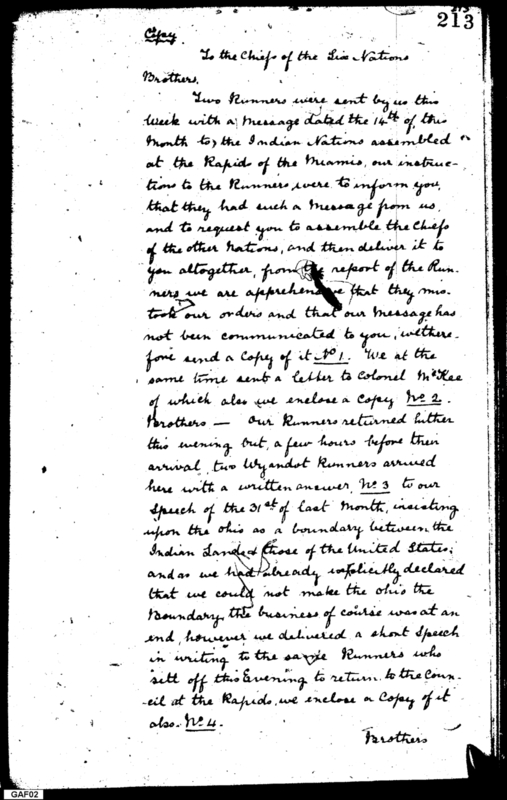 213
213
Copy
To the Chiefs of the Six Nations
Brothers,
Two Runners were sent by us this
Week with a Message dated the 14th of this
Month to the Indian Nations assembled
at the Rapids of the Miamis, our instruc-
tions to the Runners were to inform you,
that they had such a Message from us
and to request you to assemble the Chiefs
of the other Nations, and then deliver it to
you altogether, from the report of the Run-
ners we are apprehensive that they mis-
took our orders and that our Message has
not been communicated to you, we there-
fore send a Copy of it No 1. We at the
same time sent a letter to Colonel McKee
of which also we enclose a Copy No 2.
Brothers — Our Runners returned hither
this evening but, a few hours before their
arrival, two Wyandot Runners arrived
here with a written answer, No 3 to our
Speech of the 31st of last Month, insisting
upon the Ohio as a boundary between the
Indian Lands & those of the United States;
and as we had already explicitly declared
that we could not make the Ohio the
Boundary, the business of course was at an
end, however we delivered a short Speech
in writing to the same Runners who
sitt off this Evening to return to the Coun-
cil at the Rapids, we enclose a Copy of it
also. No 4.
Brothers
GAF02